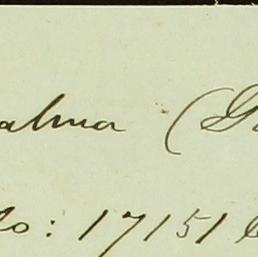 alma (G
do: 17151